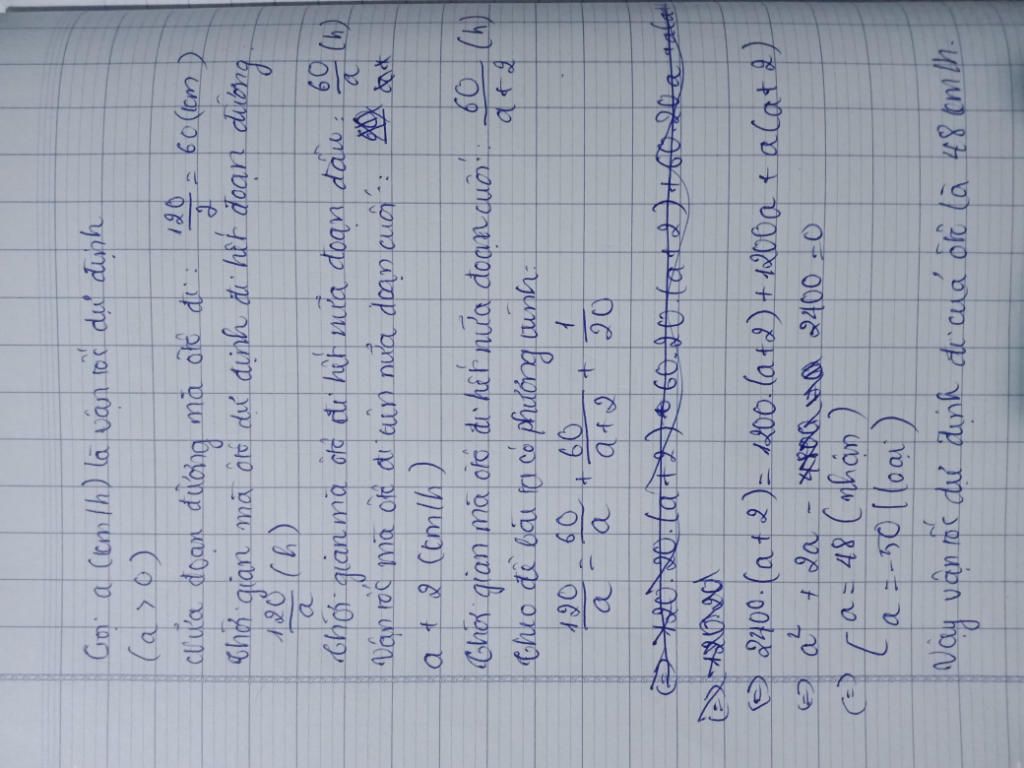 Gọi a (km/h) là vận tốc dự định
(a > 0)
Nửa đoạn đường mà ôtô đi: 120/2 = 60 (km)
Thời gian mà ôtô dự định đi hết đoạn đường
120/a (h)
Thời gian mà ôtô đi hết nửa đoạn đầu: 60/a (h)
Vận tốc mà ôtô đi trên nửa đoạn cuối:
a + 2 (km/h)
Thời gian mà ôtô đi hết nửa đoạn cuối: 60/(a+2) (h)
Theo đề bài ta có phương trình:
120/a = 60/a + 60/(a+2) + 1/20
(=) 2400.(a+2) = 1200.(a+2) + 1200a + a(a+2)
(=) a² + 2a - 2400 = 0
(=) [ a = 48 (nhận)
[ a = -50 (loại)
Vậy vận tốc dự định đi cuả ôtô là 48 km/h.